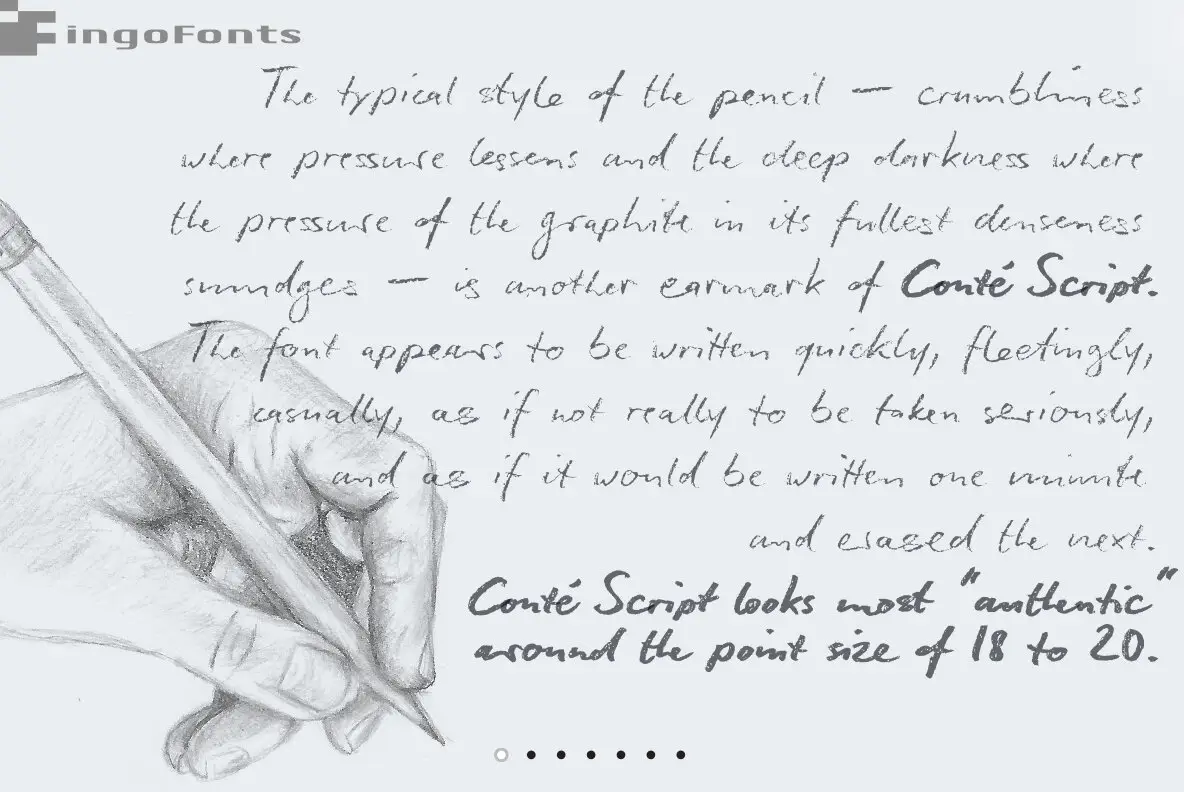 ingoFonts
The typical style of the pencil — crumbliness
where pressure lessens and the deep darkness where
the pressure of the graphite in its fullest denseness
smudges — is another earmark of Conté Script.
The font appears to be written quickly, fleetingly,
casually, as if not really to be taken seriously,
and as if it would be written one minute
and erased the next.
Conté Script looks most "authentic"
around the point size of 18 to 20.